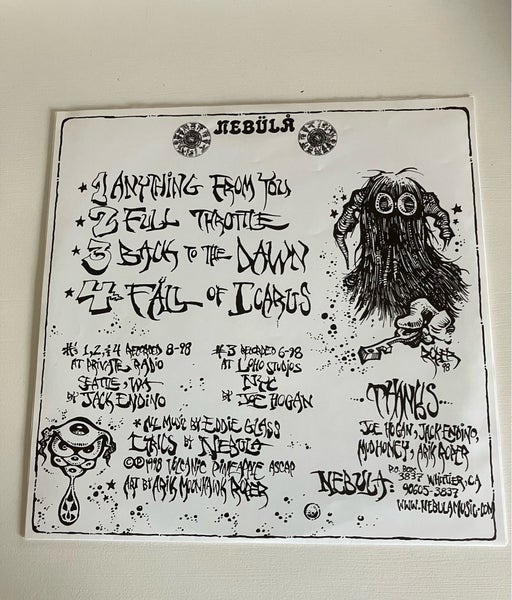 NEBÜLA
1 ANYTHING FROM YOU
2 FULL THROTTLE
3 BACK TO THE DAWN
4 FALL OF ICARUS
#'s 1, 2, & 4 RECORDED 8-98
AT PRIVATE RADIO
SEATTLE, WA
BY JACK ENDINO
#3 RECORDED 6-98
AT LOHO STUDIOS
NYC
BY JOE HOGAN
* ALL MUSIC BY EDDIE GLASS
LYRICS BY NEBULA
©℗1998 VOLCANIC PINEAPPLE ASCAP
* ART BY ARIK MOONHAWK ROPER
ROPER
98
THANKS
JOE HOGAN, JACK ENDINO,
MUDHONEY, ARIK ROPER
NEBULA: P.O. BOX
3837 WHITTIER, CA
90605-3837
WWW.NEBULAMUSIC.COM